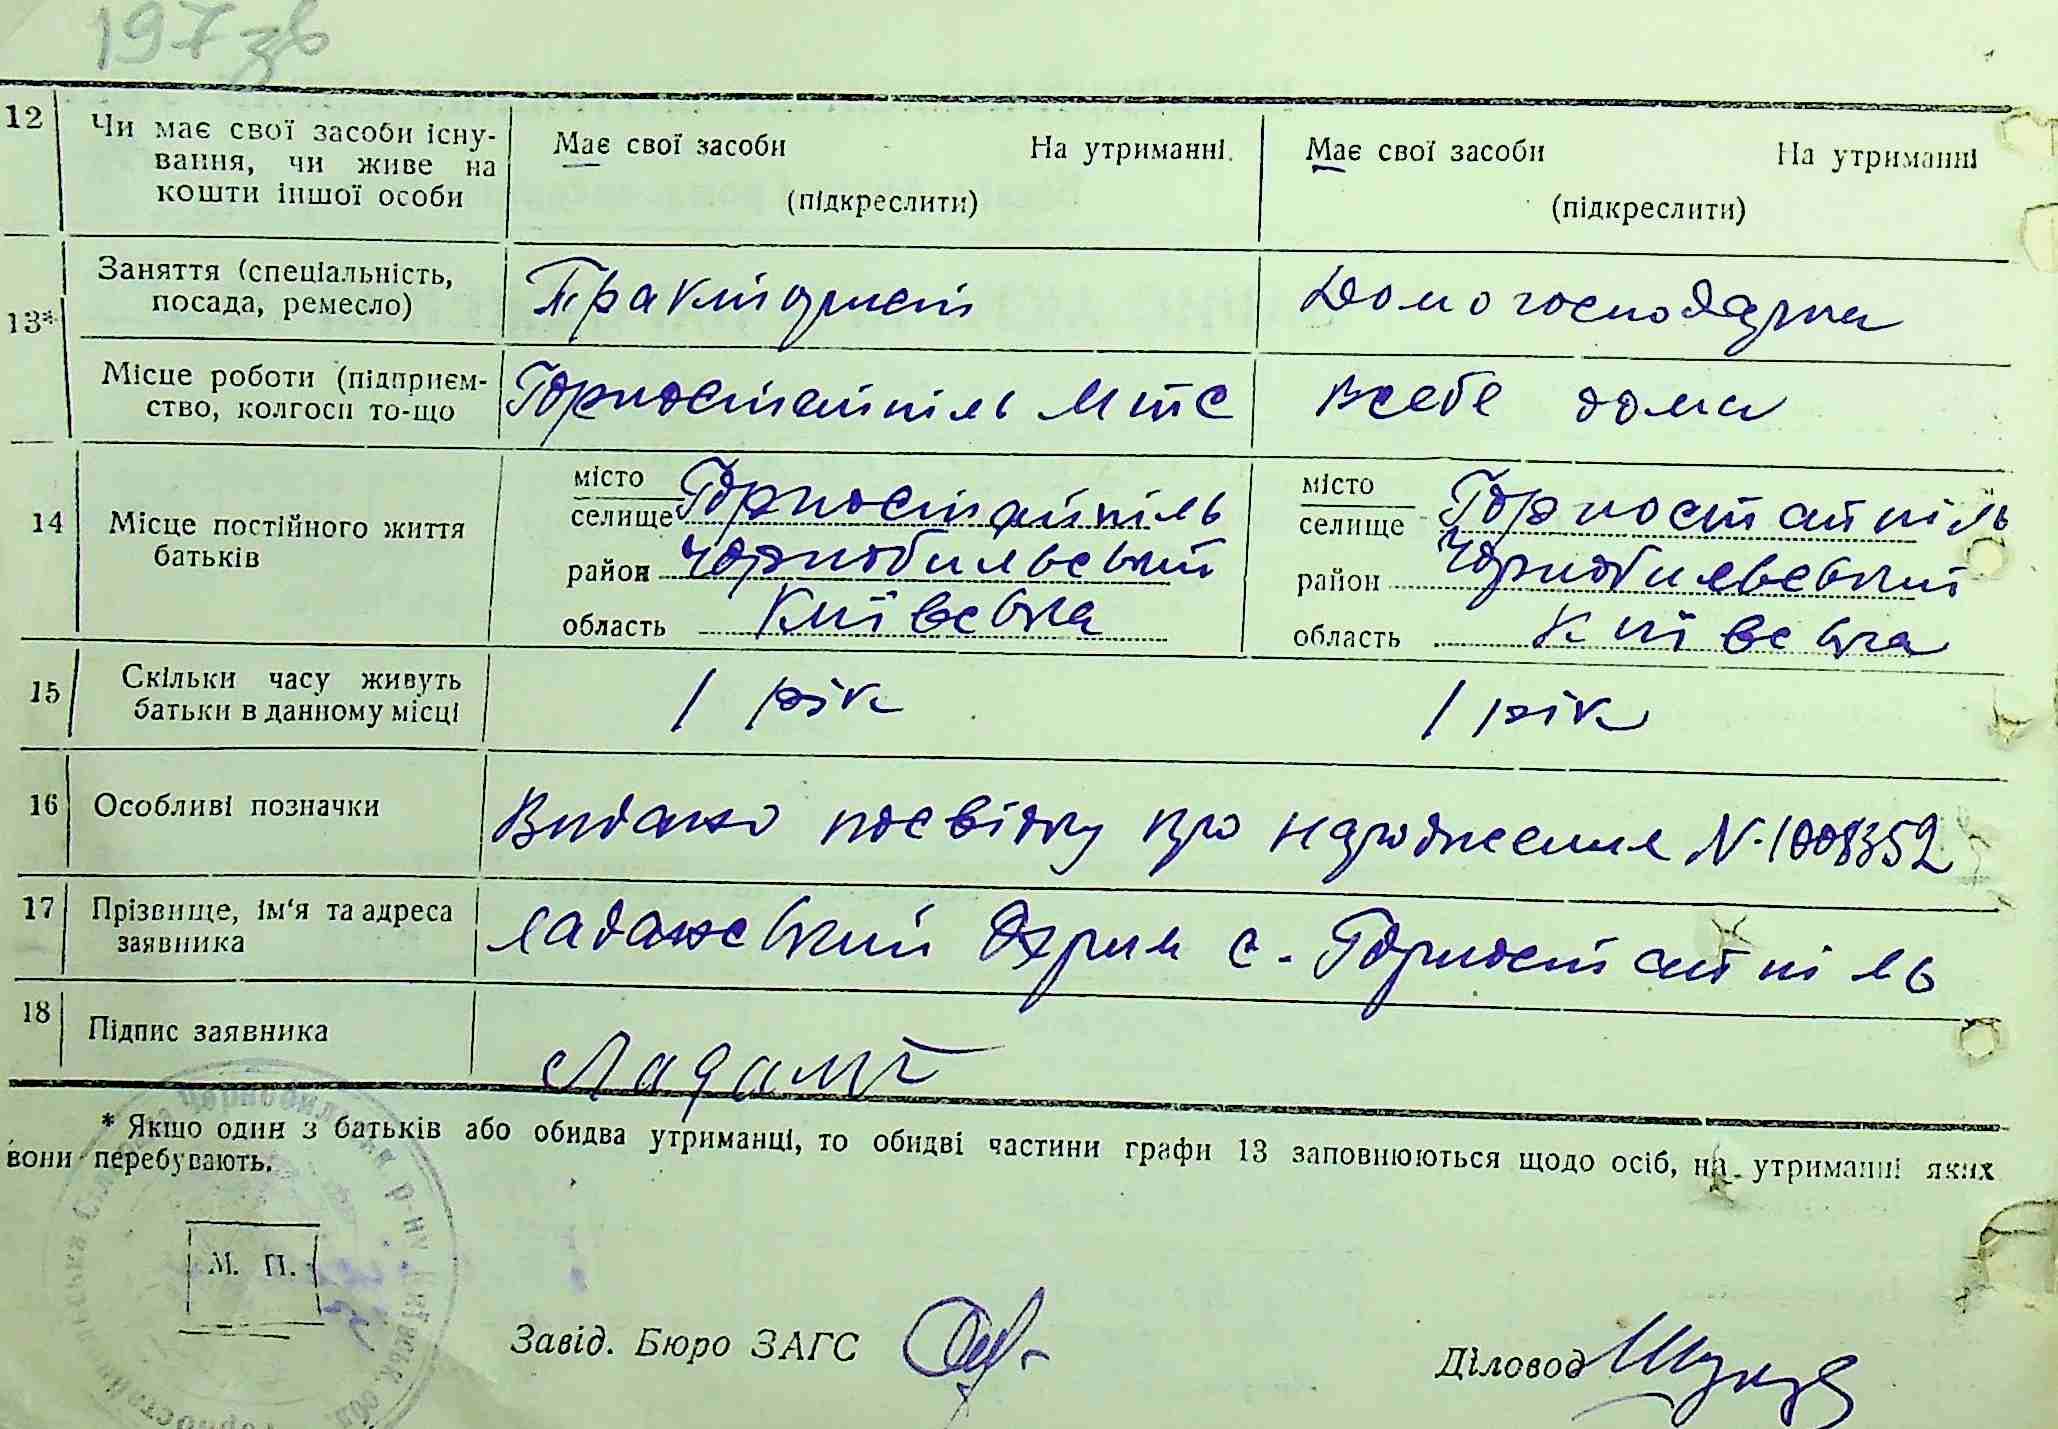 197зв
12
Чи має свої засоби існу-
вання, чи живе на
кошти іншої особи
Має свої засоби На утриманні
(підкреслити)
Має свої засоби На утриманні
(підкреслити)
13*
Заняття (спеціальність,
посада, ремесло)
Тракторист
Домогосподарка
Місце роботи (підприєм-
ство, колгосп то-що
Горностайпіль МТС
В себе дома
14
Місце постійного життя
батьків
місто
селище Горностайпіль
район Чорнобильський
область Київська
місто
селище Горностайпіль
район Чорнобильський
область Київська
15
Скільки часу живуть
батьки в данному місці
1 рік
1 рік
16
Особливі позначки
Видано посвідку про народження N-1008352
17
Прізвище, ім'я та адреса
заявника
Ладановський с. Горностайпіль
18
Підпис заявника
* Якшо один з батьків або обидва утриманці, то обидві частини графи 13 заповнюються щодо осіб, на утриманні яких
вони перебувають.
М. П.
Завід. Бюро ЗАГС
Діловод